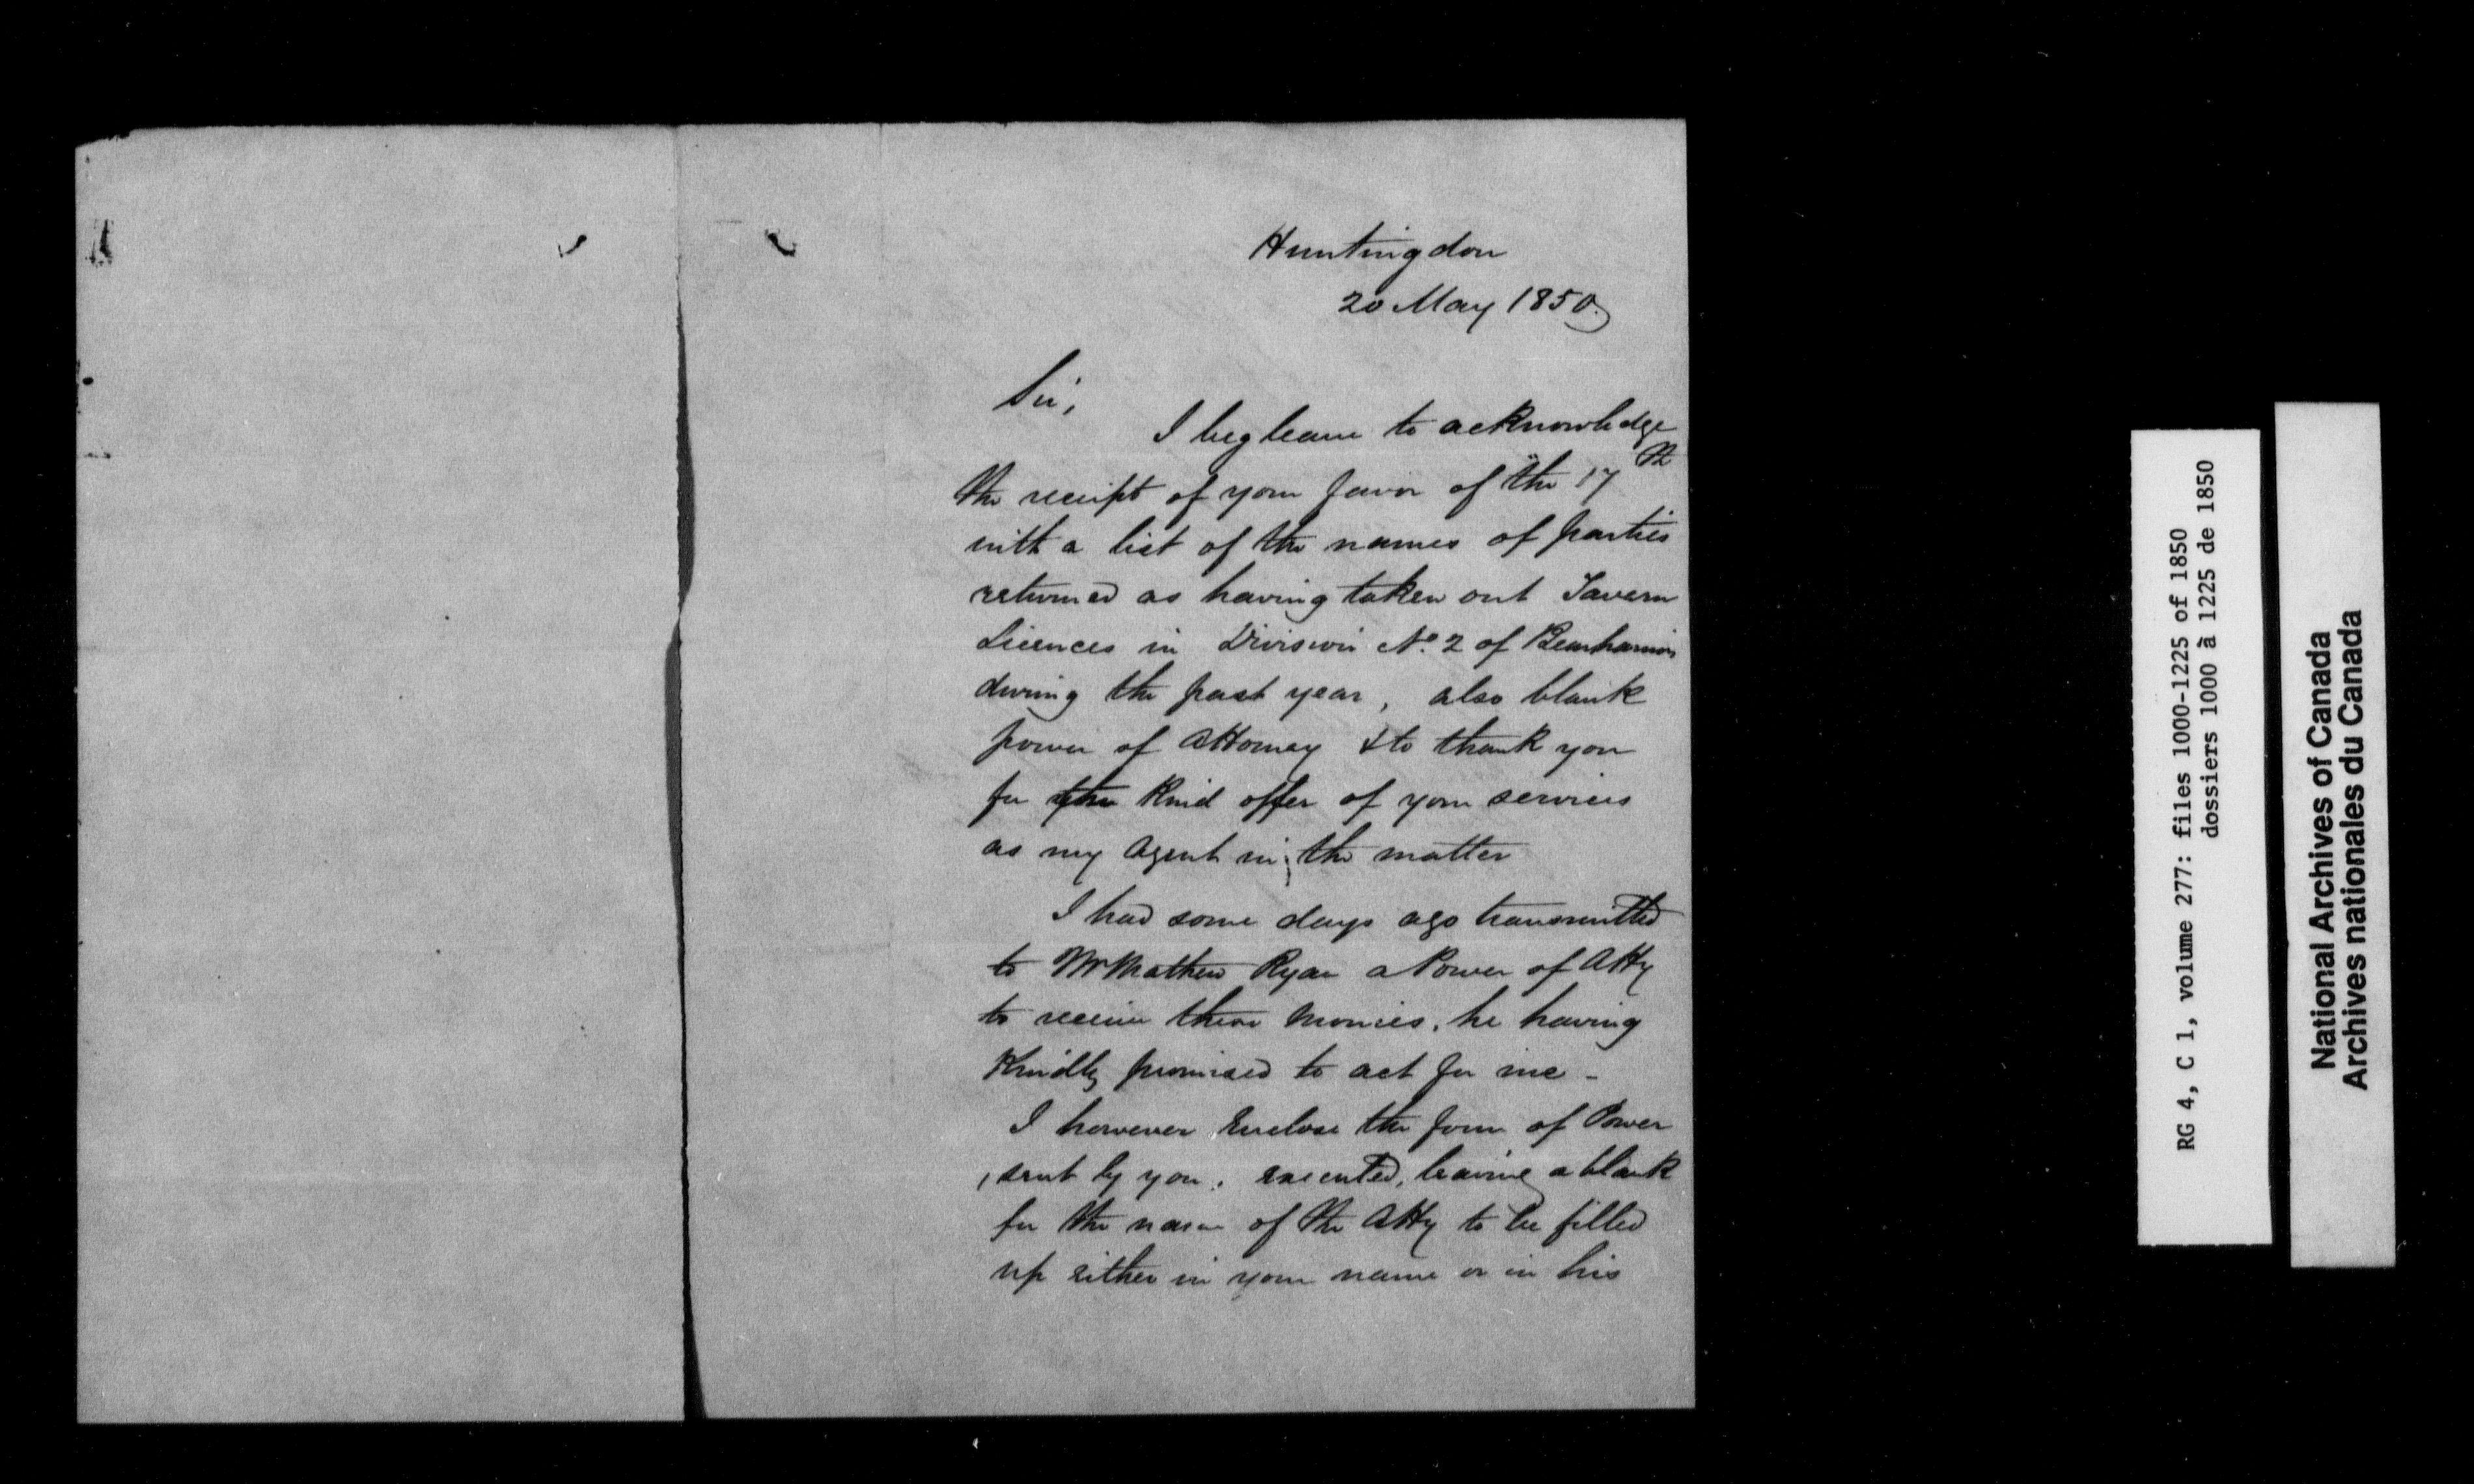 Huntingdon
20 May 1850.
Sir,
I beg leave to acknowledge
the receipt of your favor of the 17th
with a list of the names of parties
returned as having taken out Tavern
Licences in Division No. 2 of Beauharnois
during the past year, also blank
power of Attorney & to thank you
for the kind offer of your services
as my Agent in the matter
I had some days ago transmitted
to Mr Mathew Ryan a Power of Atty
to receive these Monies, he having
Kindly promised to act for me -
I however Enclose the form of Power
sent by you, executed, leaving a blank
for the name of the Atty to be filled
up either in your name or in his
RG 4, C 1, volume 277: files 1000-1225 of 1850
dossiers 1000 à 1225 de 1850
National Archives of Canada
Archives nationales du Canada